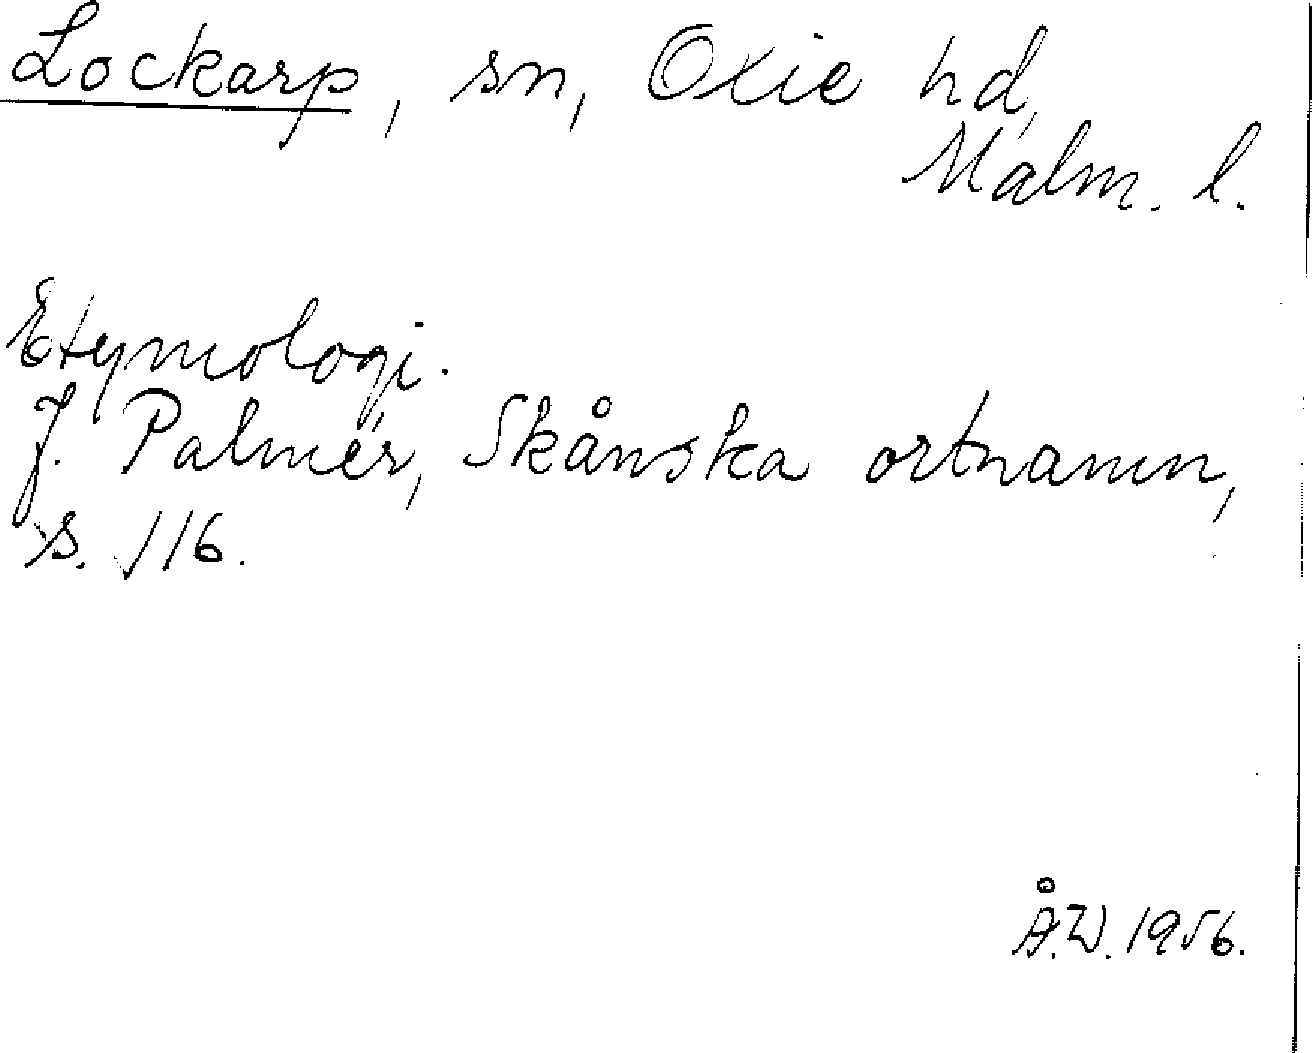 Lockarp, sn, Oxie hd,
Malm. l.
Etymologi.
J. Palmér, Skånska ortnamn,
s. 116.
Å.W. 1956.